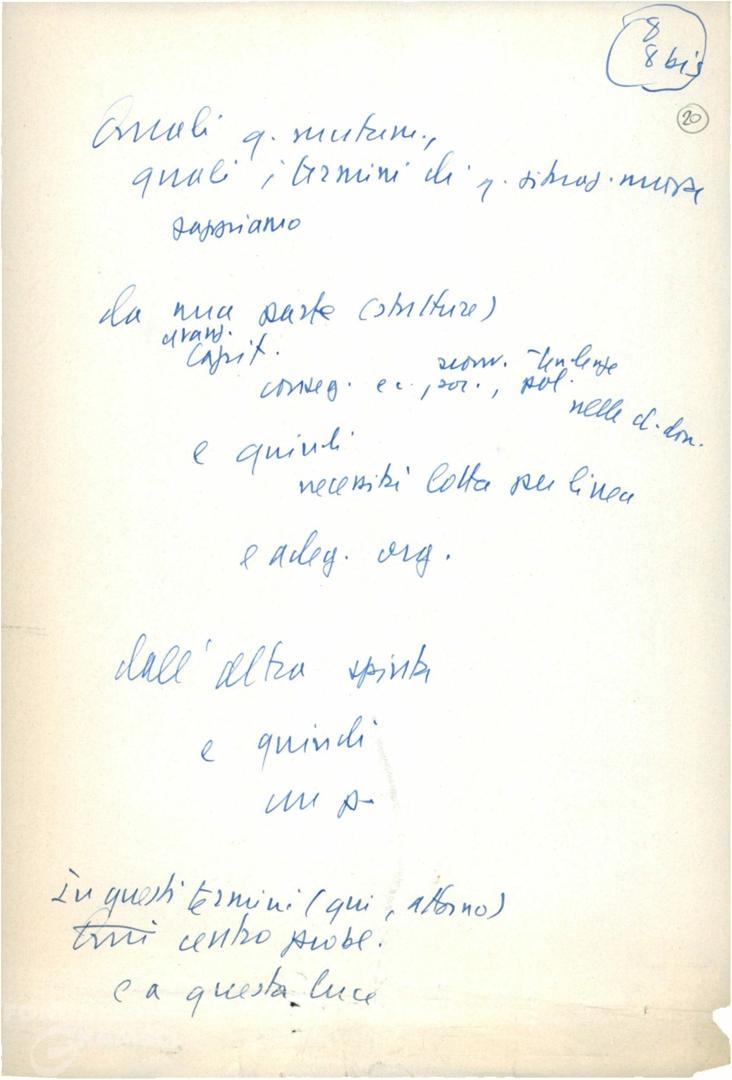 8
8 bis
20
Quali q. mutam.,
quali i termini di q. situaz. nuova
sappiamo
da una parte (strutture)
avanz.
capit.
conseg. ec., soc., pol.
tendenze
nelle
e quindi
necessità lotta per linea
e adeg. org.
dall'altra spinta
e quindi
un p
In questi termini (qui, attorno)
Qui centro probl.
e a questa luce